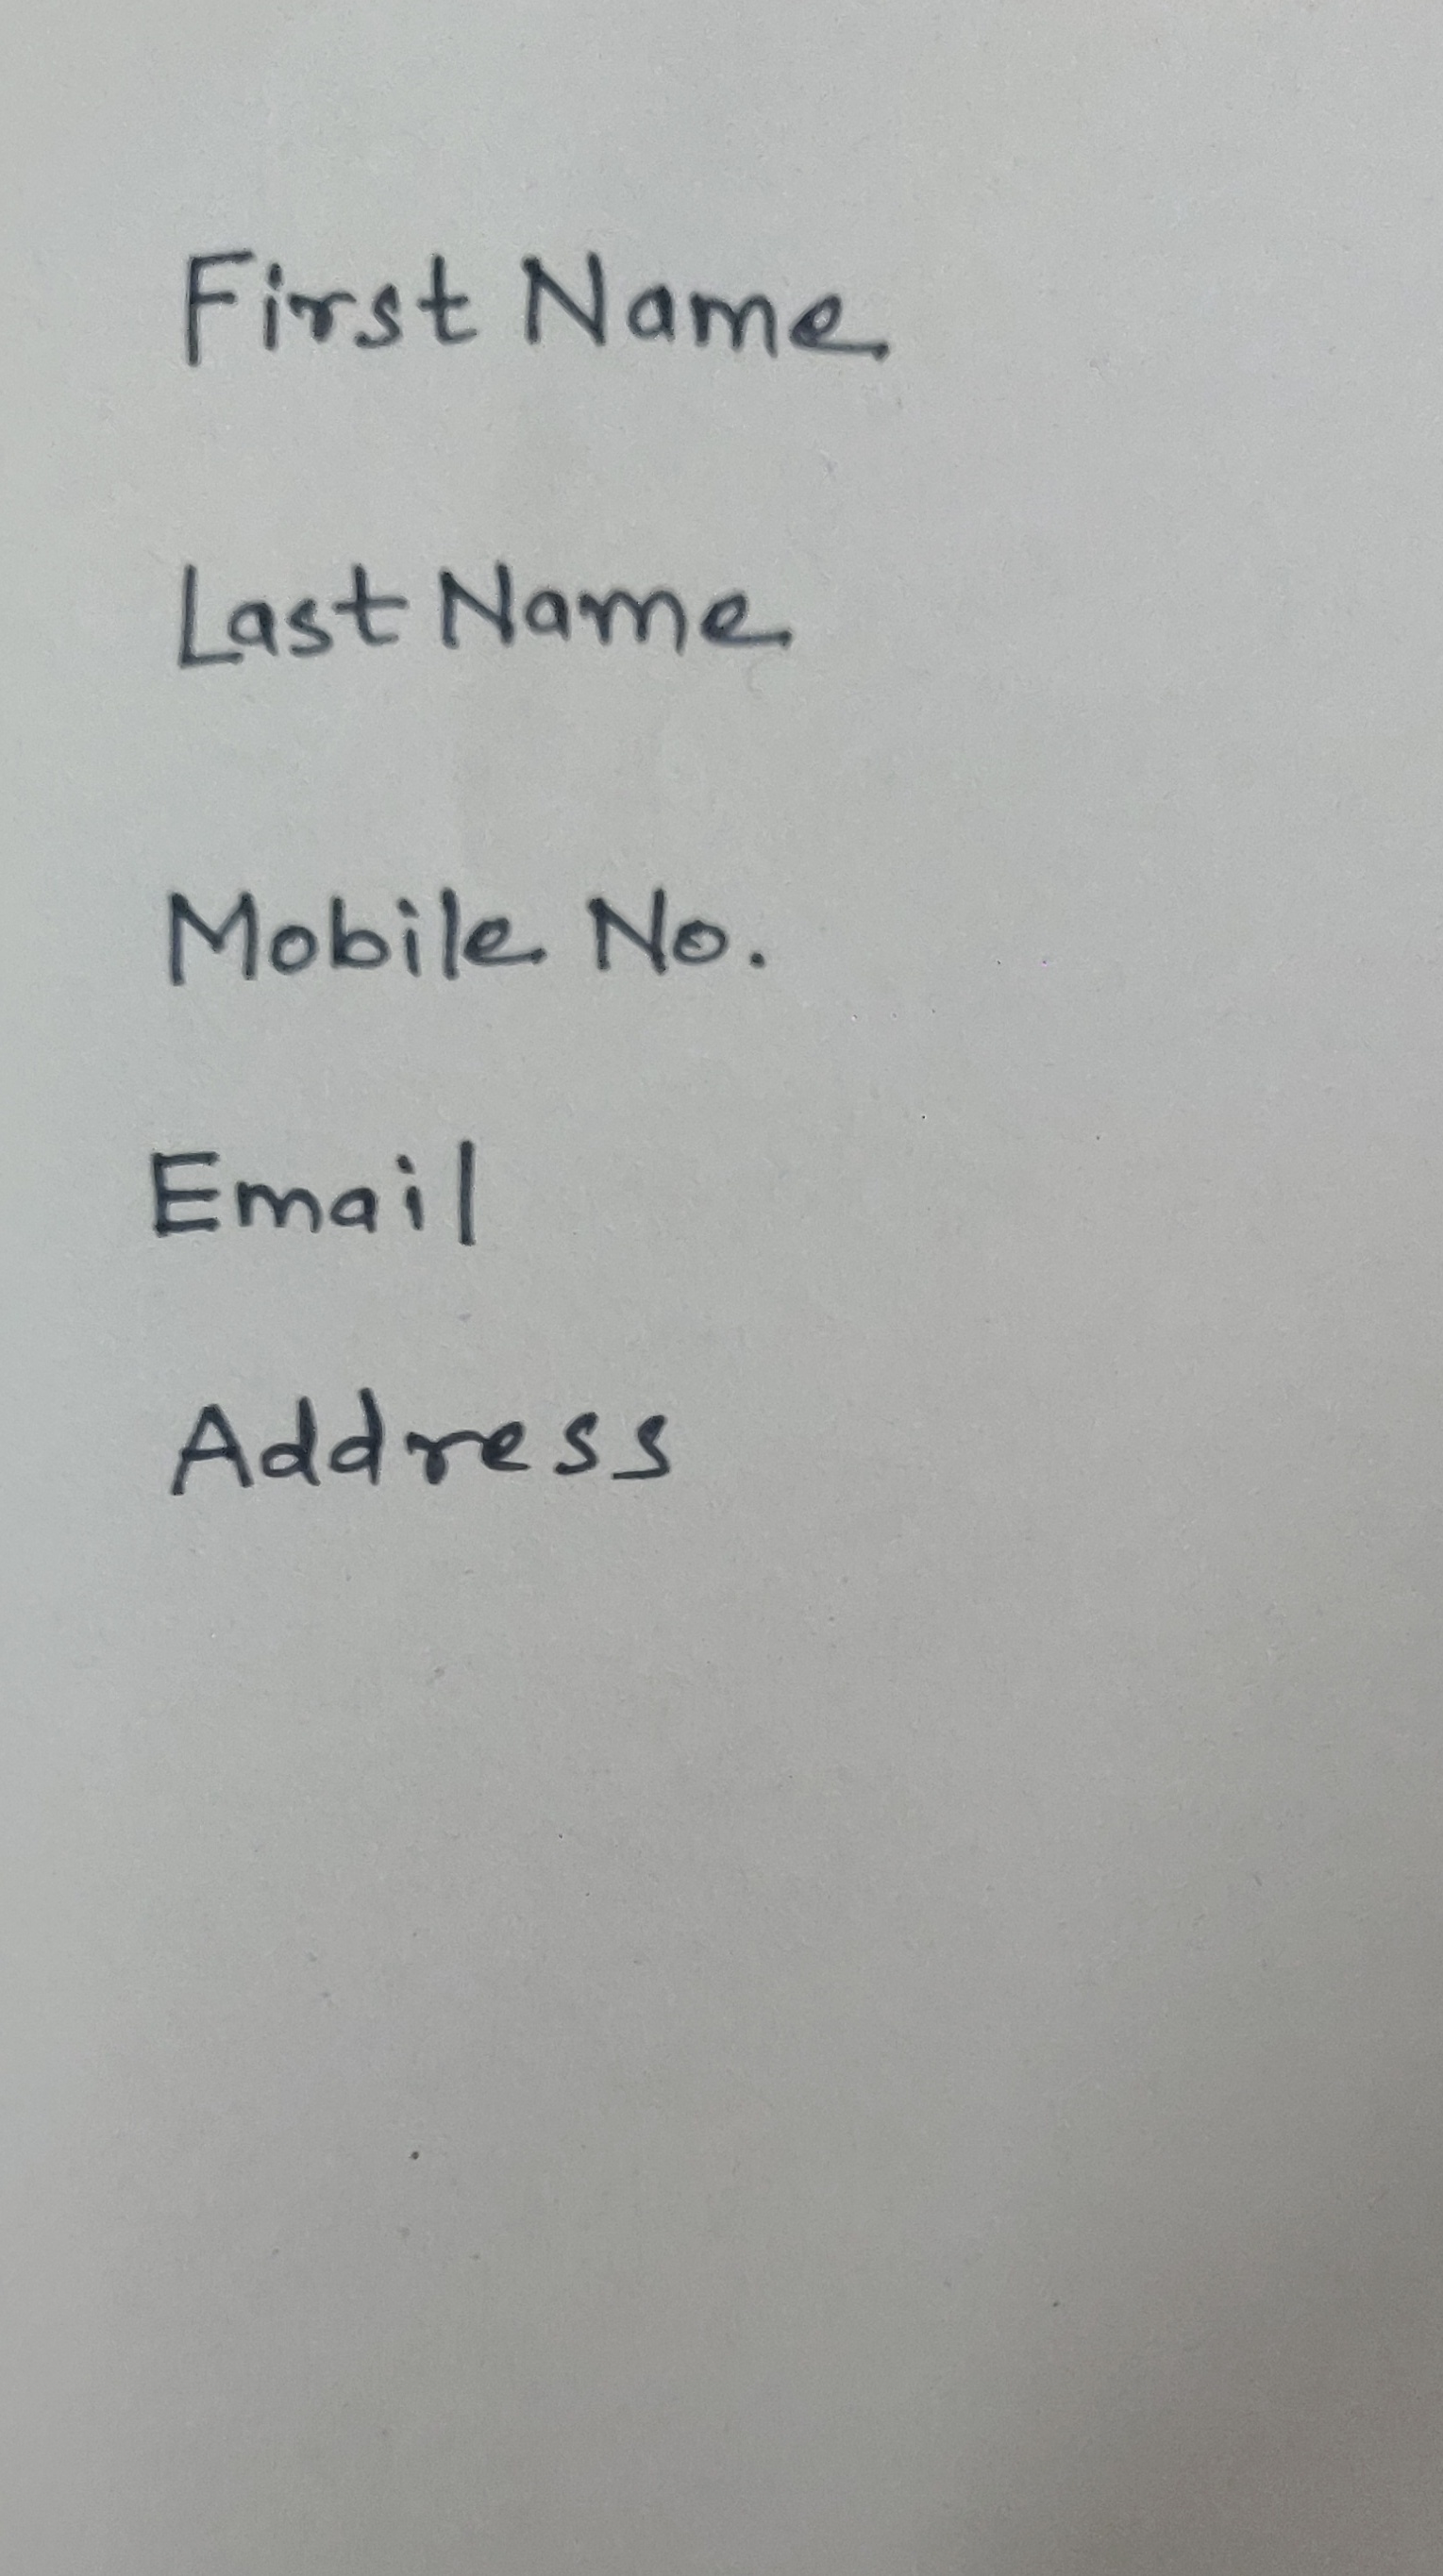 First Name
Last Name
Mobile No.
Email
Address